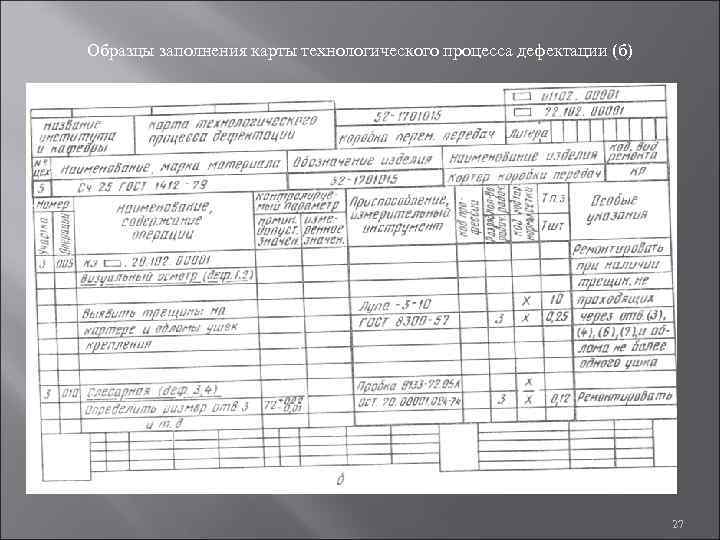 Образцы заполнения карты технологического процесса дефектации (б)
01102.00001
52-1701015
22.102.00001
название института и кафедры
карта технологического процесса дефектации
коробка перем. передач
Литера
№ цех.
Наименование, марка материала
Обозначение изделия
Наименование изделия
вид ремонта
5
Сч 25 ГОСТ 1412-79
52-1701015
Картер коробки передач
КР
Номер
Участка
Операции
Наименование, содержание операции
контролируемый параметр
номин. допуст. значен.
изме- ренное значен.
Приспособление, измерительный инструмент
код про- фессии
Тп.з
Тшт
Особые указания
3
005
КЭ
.20.102 00001
Визуальный осмотр (деф.1.2)
Выявить трещины на
картере и обломы ушек
крепления
Лупа -3-10
ГОСТ 8300-57
3
х
х
10
0,25
Ремонтировать
при наличии
трещин, не
проходящих
через отв (3),
(4), (6), (7), и об-
лома не более
одного ушка
3
010
Слесарная (деф 3,4)
Определить размер отв 3
и т.д
Пробка 8133-72.05Х
ОСТ 70.00001.084-74
3
х
х
0,12
Ремонтировать
б
27